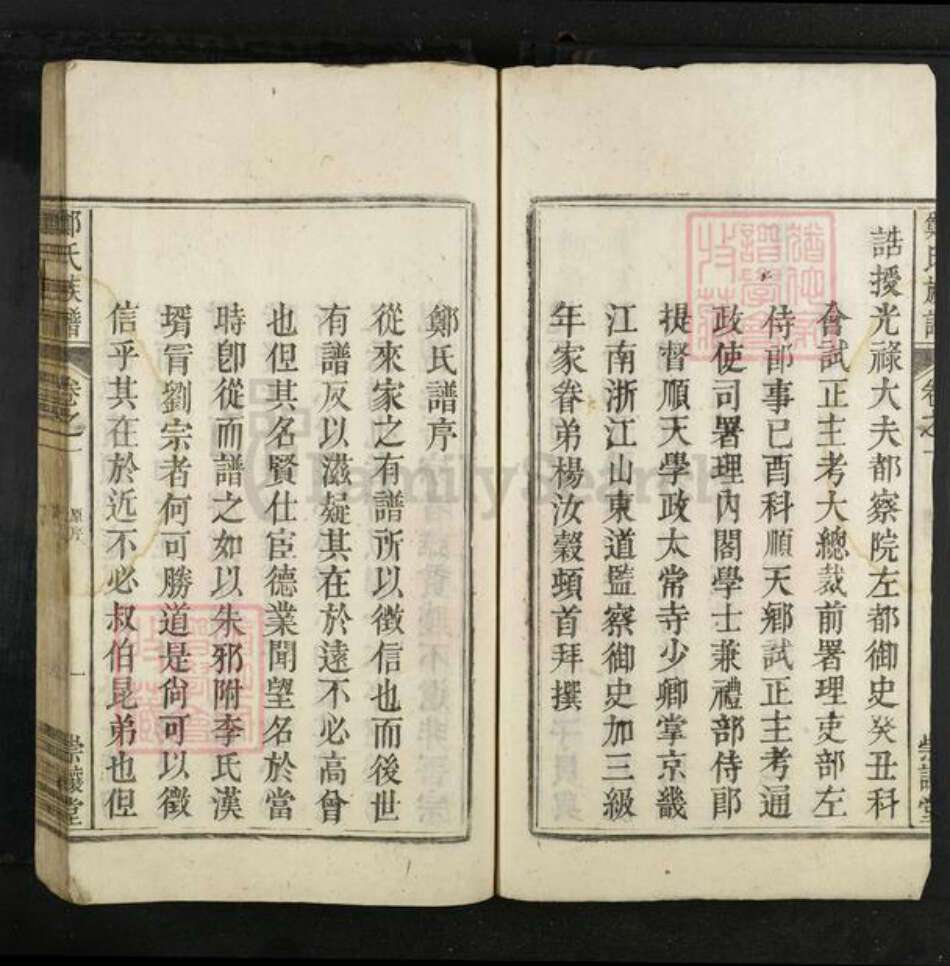 誥授光祿大夫都察院左都御史癸丑科
會試正主考大總裁前署理吏部左
侍郎事己酉科順天鄉試正主考通
政使司署理內閣學士兼禮部侍郎
提督順天學政太常寺少卿掌京畿
江南浙江山東道監察御史加三級
年家眷弟楊汝穀頓首拜撰
鄭氏譜序
從來家之有譜所以徵信也而後世
有譜反以滋疑其在於遠不必高曾
也但其名賢仕宦德業聞望名於當
時卽從而譜之如以朱邪附李氏漢
壻冐劉宗者何可勝道是尙可以徵
信乎其在於近不必叔伯昆弟也但
鄭氏族譜
卷之一
原序
一
崇讓堂
FamilySearch